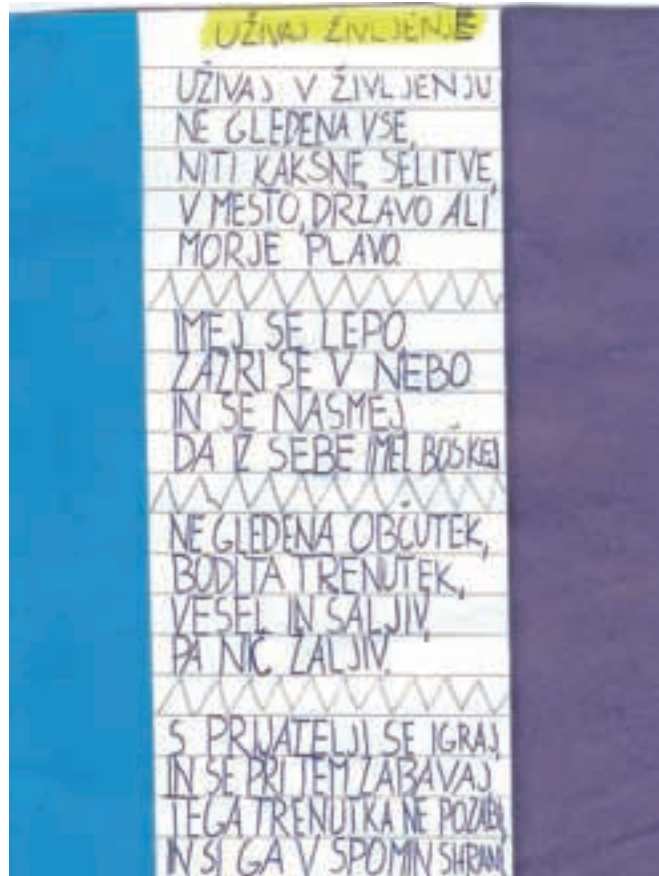 UŽIVAJ ŽIVLJENJE
UŽIVAJ V ŽIVLJENJU
NE GLEDENA VSE,
NITI KAKSNE SELITVE,
V MESTO, DRŽAVO ALI
MORJE PLAVO.
IMEJ SE LEPO
ZAZRI SE V NEBO
IN SE NASMEJ
DA IZ SEBE IMEL BOŠ KEJ
NE GLEDENA OBČUTEK,
BODI TA TRENUTEK,
VESEL IN ŠALJIV,
PA NIČ ŽALJIV.
S PRIJATELJI SE IGRAJ,
IN SE PRI TEM ZABAVAJ
TEGA TRENUTKA NE POZABI,
IN SI GA V SPOMIN SHRANI